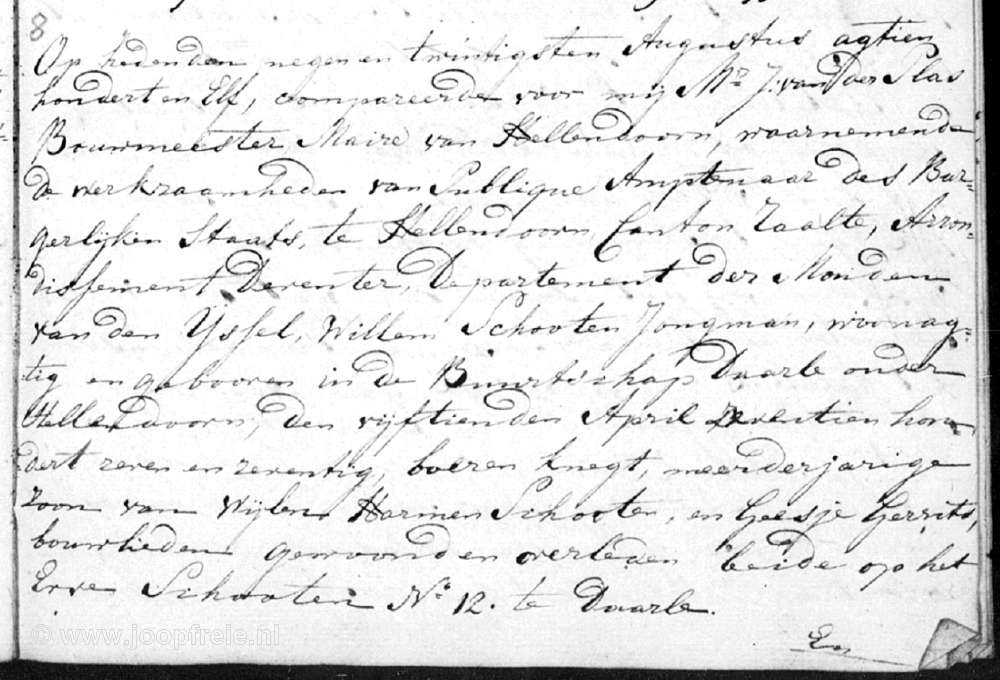 8
Op heden den negen en twintigsten Augustus agtien
hondert en Elf, compareerde voor mij Mr. J. van der Plas
Bouwmeester Maire van Hellendoorn, waarnemende
de werkzaamheden van Publique Amptenaar des Bur=
gerlijken Staats, te Hellendoorn Canton Raalte, Arron=
dissement Deventer, Departement der Monden
van den Yssel, Willem Schooten Jongman, woonag=
tig en gebooren in de Buurtschap Daarle onder
Hellendoorn, den vijftienden April zeventien hon
dert zeven en zeventig, boeren knegt, meerderjarige
zoon van wijlen Harmen Schooten, en Geesje Gerrits,
bouwlieden gewoond en overleden beide op het
Erve Schooten No 12. te Daarle.
En
© www.joopfreie.nl